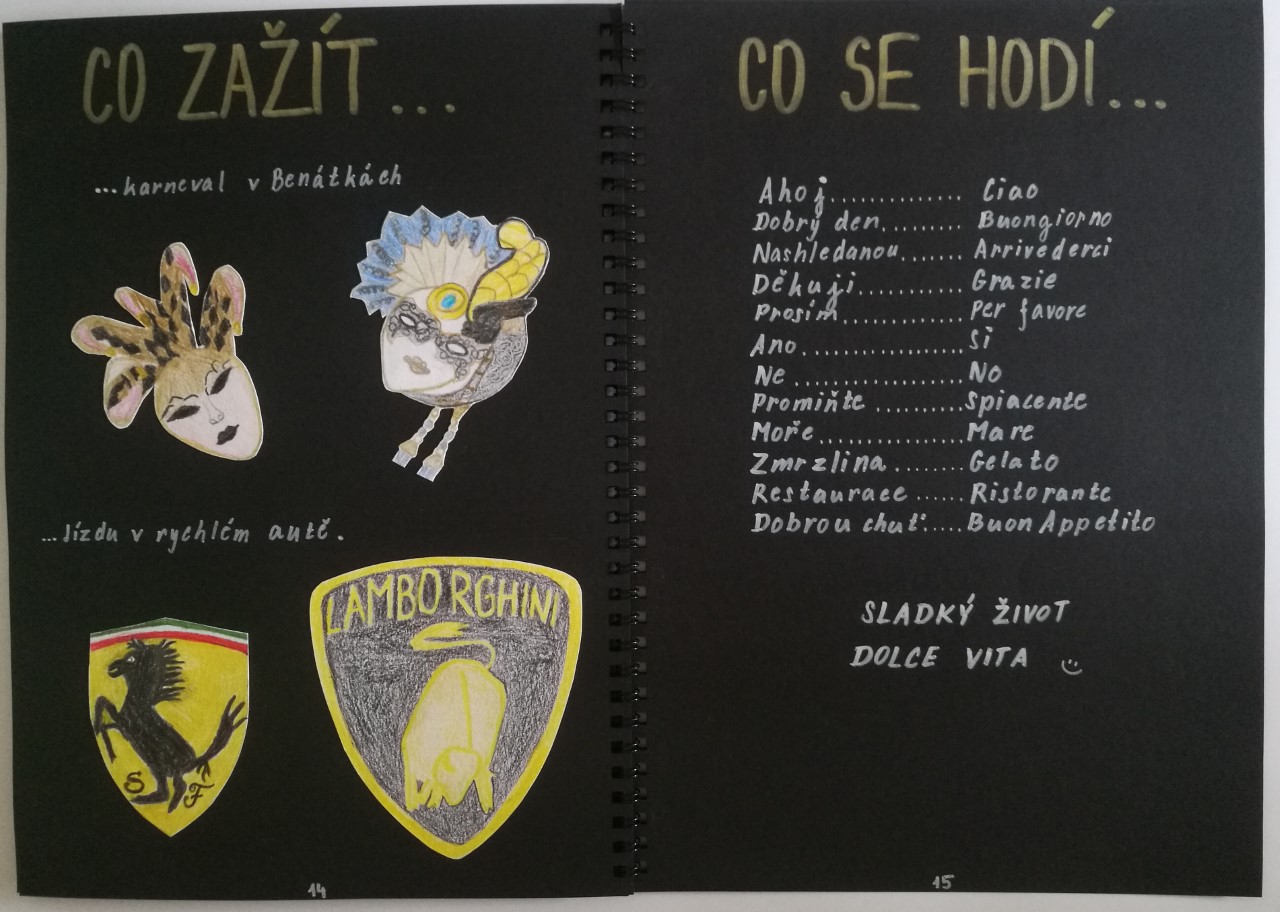 CO ZAŽÍT...
...karneval v Benátkách
...Jízdu v rychlém autě.
S F
LAMBORGHINI
14
CO SE HODÍ...
Ahoj.............. Ciao
Dobrý den......... Buongiorno
Nashledanou....... Arrivederci
Děkuji........... Grazie
Prosím............. Per favore
Ano.................. Si
Ne .................. No
Promiňte ......... Spiacente
Moře............... Mare
Zmrzlina ....... Gelato
Restaurace ...... Ristorante
Dobrou chuť..... Buon Appetito
SLADKÝ ŽIVOT
DOLCE VITA
15